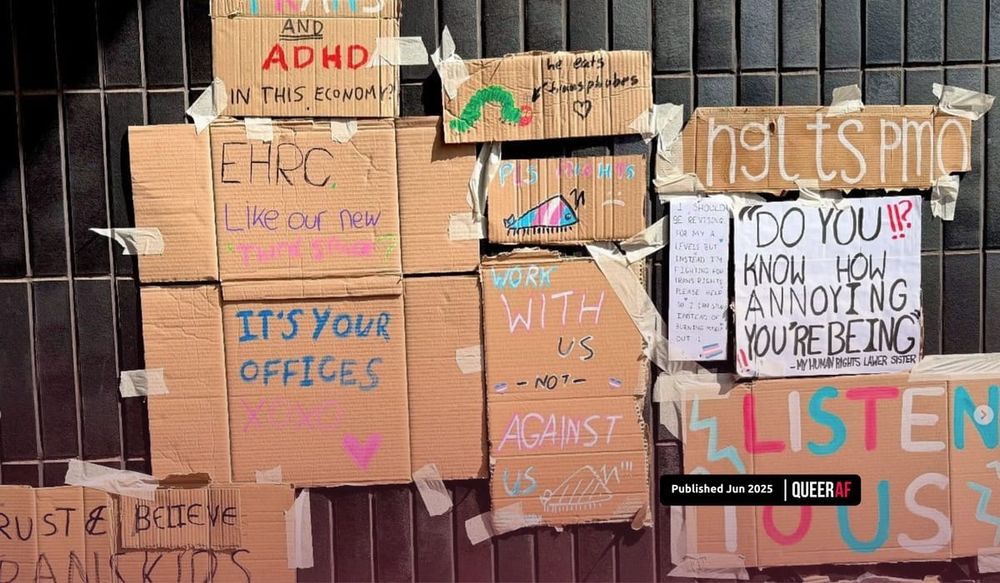 TRANS
AND
ADHD
IN THIS ECONOMY?
EHRC.
Like our new
IT'S YOUR
OFFICES
XOXO
RUST & BELIEVE
RANS KIDS
he eats
transphobes
PLS RIGHTS
WORK
WITH
US
- NOT -
AGAINST
US
ngl ts pmo
I SHOULD
BE REVISING
FOR MY A
LEVELS BUT
INSTEAD I'M
FIGHTING FOR
TRANS RIGHTS
PLEASE HELP
SO I CAN STUDY
INSTEAD OF
BURNING MYSELF
OUT :(
"DO YOU !!?
KNOW HOW
ANNOYING
YOU'RE BEING"
!!
- MY HUMAN RIGHTS LAWER SISTER
LISTEN
TO US
Published Jun 2025 | QUEERAF